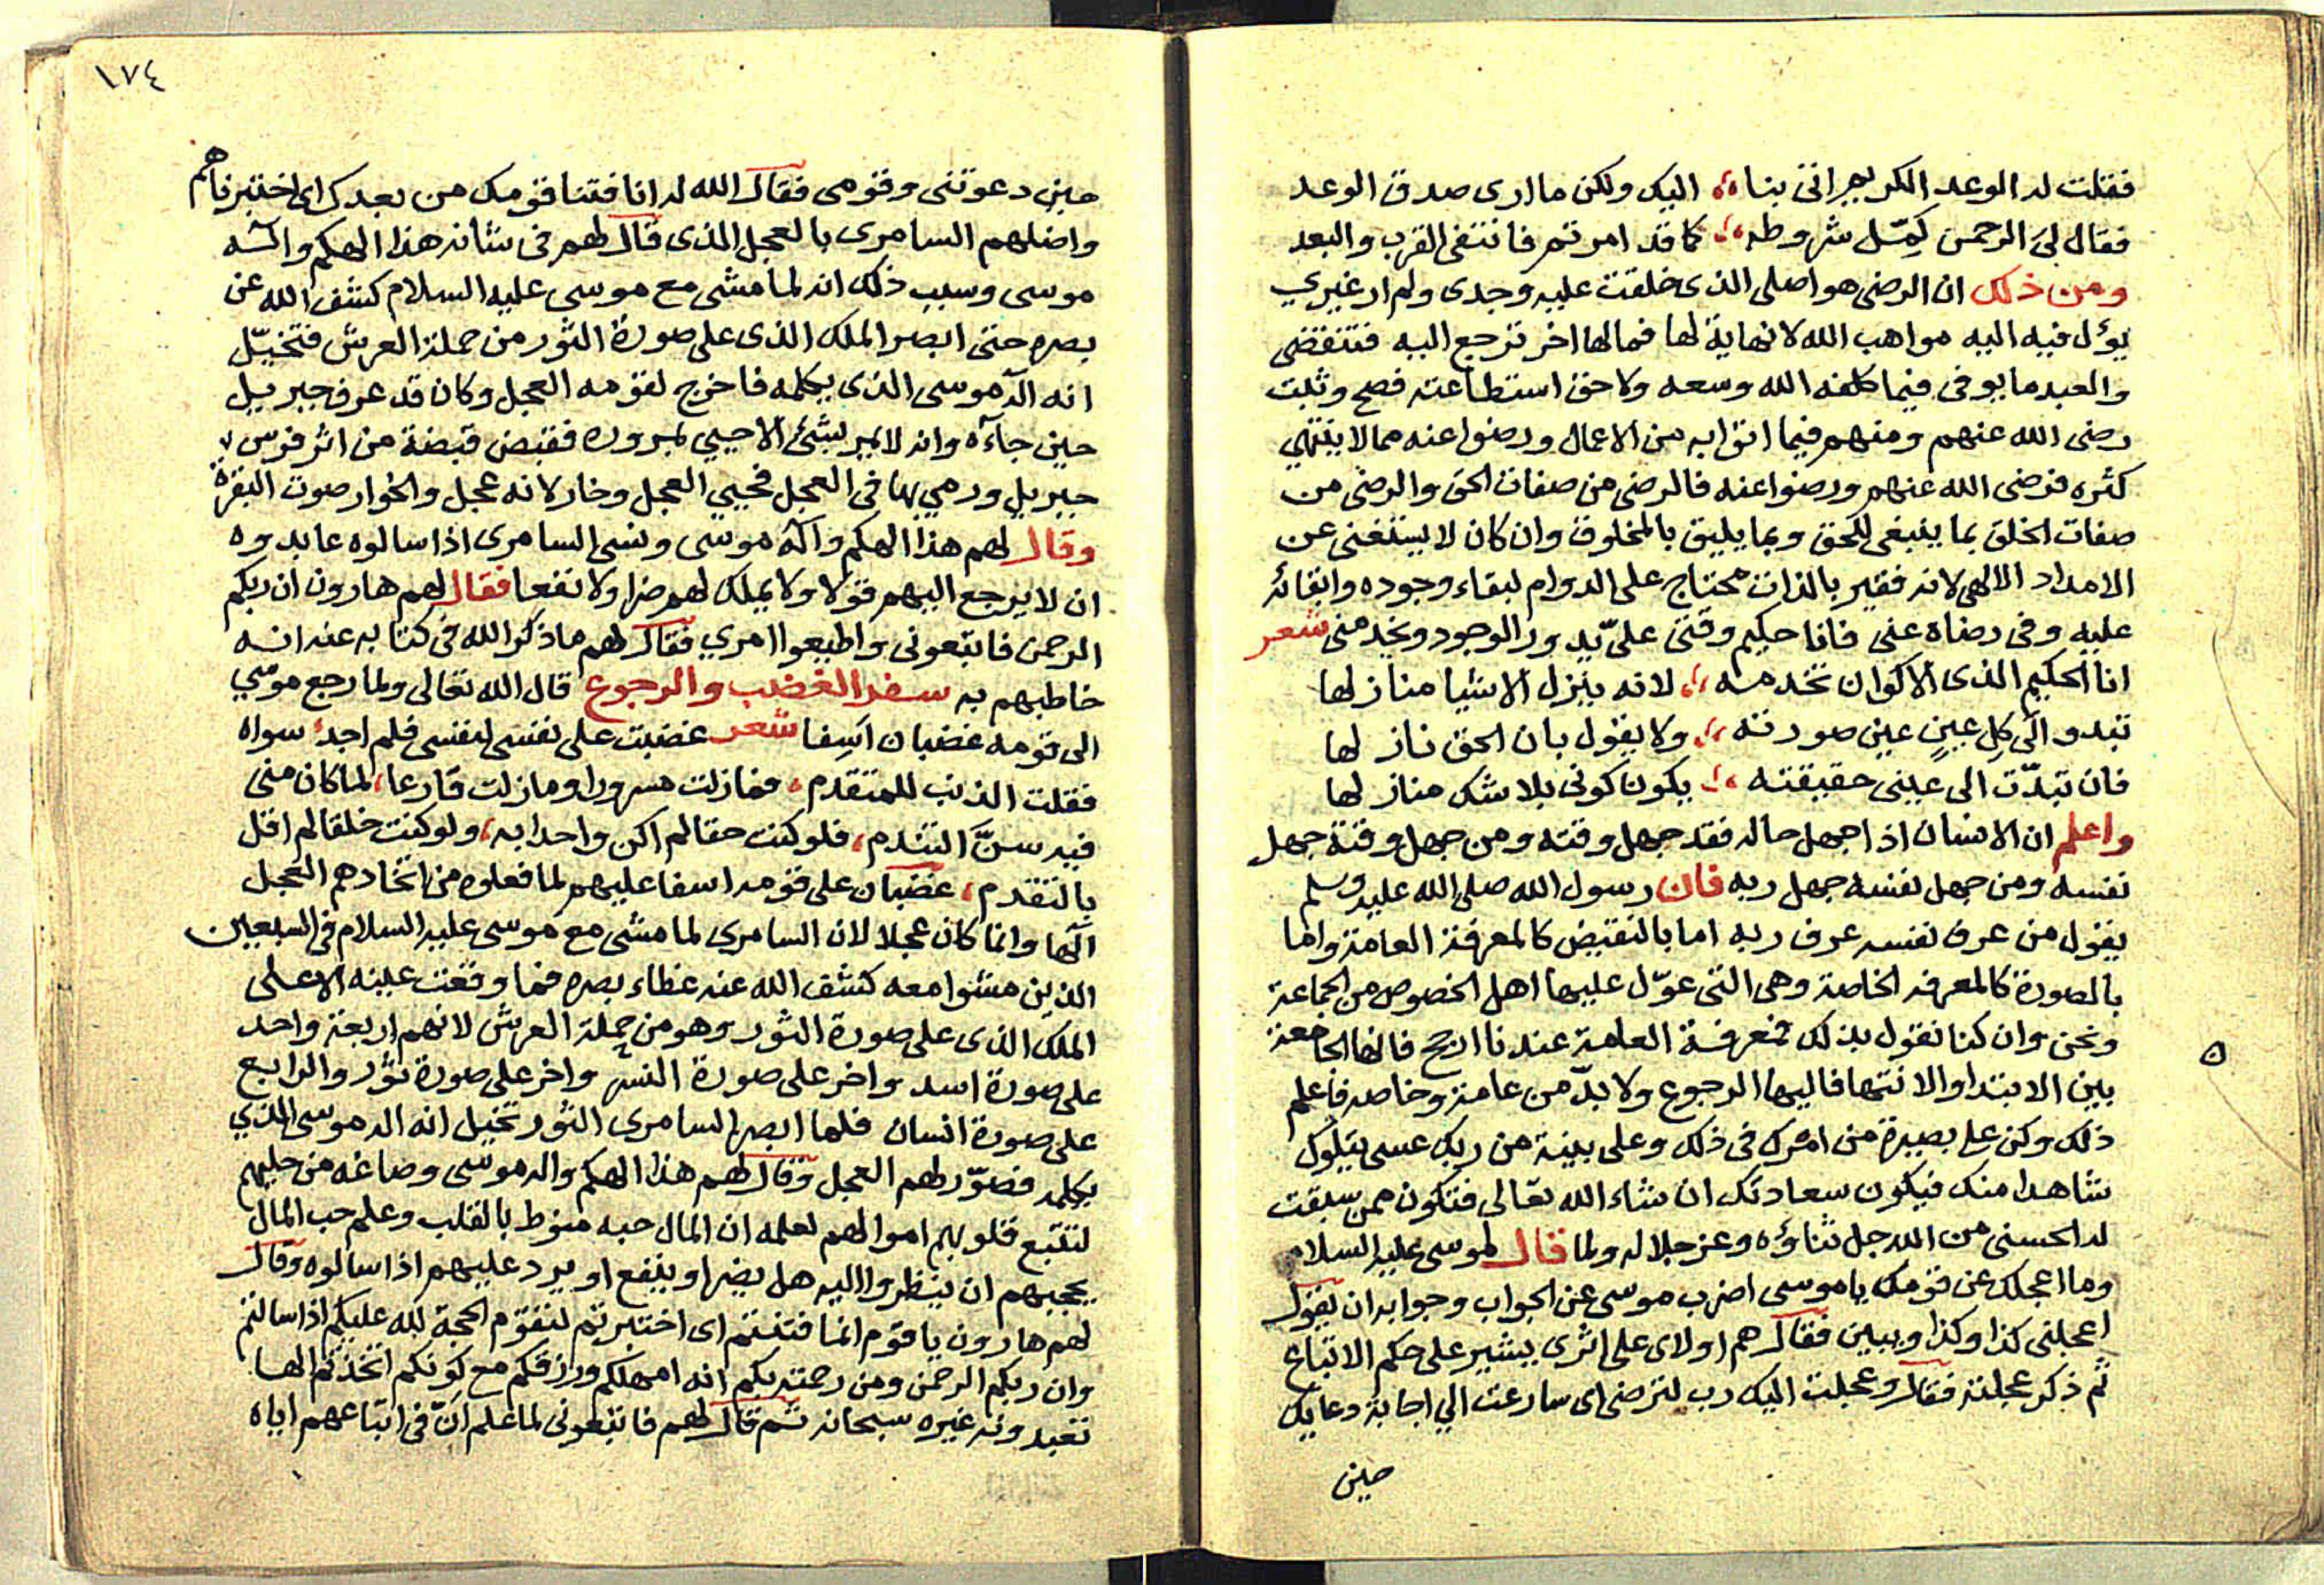 فقلت له الوعد الكريم اتى بنا ،، اليك ولكن ما ارى صدق الوعد
فقال لى الرحمن كمّل شروطه ،، كما قد امرتم فانتفى القرب والبعد
ومن ذلك ان الرضى هو اصلى الذى خلقت عليه وجدى ولم ار غيري
يؤل فيه اليه مواهب الله لا نهاية لها فما لها اخر ترجع اليه فتنقضى
والعبد ما يوفى فيما كلفه الله وسعه ولا حق استطاعته فصح وثبت
رضى الله عنهم ومنهم فيما اتوا به من الاعمال ورضوا عنه مما لا ينتهي
كثره فرضى الله عنهم ورضوا عنه فالرضى من صفات الحق والرضى من
صفات الخلق بما ينبغى للحق وبما يليق بالمخلوق وان كان لا يستغنى عن
الامداد الالهى لانه فقير بالذات محتاج على الدوام لبقاء وجوده وابقائه
عليه وفى رضاه عنى فانا حكيم وقتى علىّ يدور الوجود ويخدمنى شعر
انا الحكيم الذى الاكوان تخدمه ،، لانه ينزل الاشيا منازلها
تبدو الى كل عينٍ عين صورته ،، ولا يقول بان الحق نازلها
فان تبدّت الى عينى حقيقته ،، يكون كونى بلا شك منازلها
واعلم ان الانسان اذا جهل حاله فقد جهل وقته ومن جهل وقته جهل
نفسه ومن جهل نفسه جهل ربه فان رسول الله صلى الله عليه وسلم
يقول من عرف نفسه عرف ربه اما بالنقيض كالمعرفة العامة واما
بالصورة كالمعرفه الخاصة وهى التى عوّل عليها اهل الخصوص من الجماعة
ونحن وان كنا نقول بذلك فمعرفة العامة عندنا ارجح فانها الجامعة
بين الابتدا والانتها فاليها الرجوع ولا بدّ من عامة وخاصه فاعلم
ذلك وكن على بصيرة من امرك فى ذلك وعلى بينة من ربك عسى يتلوك
شاهدا منك فيكون سعادتك ان شاء الله تعالى فتكون ممن سبقت
له الحسنى من الله جل ثناؤه وعز جلاله ولما قال لموسى عليه السلام
وما اعجلك عن قومك يا موسى اضرب موسى عن الجواب وجوابه ان يقول
اعجلنى كذا وكذا ويبين فقال هم اولاى على اثرى يشير على حكم الاتباع
ثم ذكر عجلته فقال وعجلت اليك رب لترضى اى سارعت الي اجابة دعايك
حين
١٧٤
حين دعوتنى وقومى فقال الله له انا فتنا قومك من بعدك اى اختبرناهم
واضلهم السامرى بالعجل الذى قال لهم فى شانه هذا الهكم والٓه
موسى وسبب ذلك انه لما مشى مع موسى عليه السلام كشف الله عن
بصره حتى ابصر الملك الذى على صورة الثور من حملة العرش فتخيّل
انه الٓه موسى الذى يكلمه فاخرج لقومه العجل وكان قد عرف جبريل
حين جآءه وانه لا يمر بشئ الا حيي بمروره فقبض قبضة من اثر فرس
جبريل ورمي بها فى العجل فحيي العجل وخار لانه عجل والخوار صوت البقرة
وقال لهم هذا الهكم والٓه موسى ونسى السامرى اذا سالوه عابدوه
ان لا يرجع اليهم قولا ولا يملك لهم ضرا ولا نفعا فقال لهم هارون ان ربكم
الرحمن فاتبعونى واطيعوا امري فقال لهم ما ذكر الله فى كتابه عنه انه
خاطبهم به سفر الغضب والرجوع قال الله تعالى ولما رجع موسي
الى قومه غضبان اسِفا شعر غضبت على نفسى لنفسى فلم اجد سواه
فقلت الذنب للمتقدم ، فمازلت مسرورا ومازلت قارعا ، لما كان منى
فيه سنَّ التندم ، فلو كنت حقا لم اكن واحدا به ، ولو كنت خلقا لم اقل
بالتقدم ، غضبان على قومه اسفا عليهم لما فعلوه من اتخاذهم العجل
الٓها وانما كان عجلا لان السامري لما مشى مع موسى عليه السلام فى السبعين
الذين مشوا معه كشف الله عنه غطاء بصره فما وقعت عينه الا على
الملك الذى على صورة الثور وهو من حملة العرش لانهم اربعة واحد
على صورة اسد واخر على صورة النسر واخر على صورة ثور والرابع
على صورة انسان فلما ابصر السامرى الثور تخيل انه اله موسى الذي
يكلمه فصوّر لهم العجل وقال لهم هذا الهكم واله موسى وصاغه من حليهم
لتتبع قلوبهم اموالهم لعلمه ان المال حبه منوط بالقلب وعلم حب المال
يحجبهم ان ينظروا اليه هل يضر او ينفع او يرد عليهم اذا سالوه وقال
لهم هارون يا قوم انما فتنتم اى اختبرتم لتقوم الحجة لله عليكم اذا سالتم
وان ربكم الرحمن ومن رحمته بكم انه امهلكم ورزقكم مع كونكم اتخذتم الها
تعبدونه غيره سبحانه ثم قال لهم فاتبعونى لما علم انّ فى اتباعهم اياه